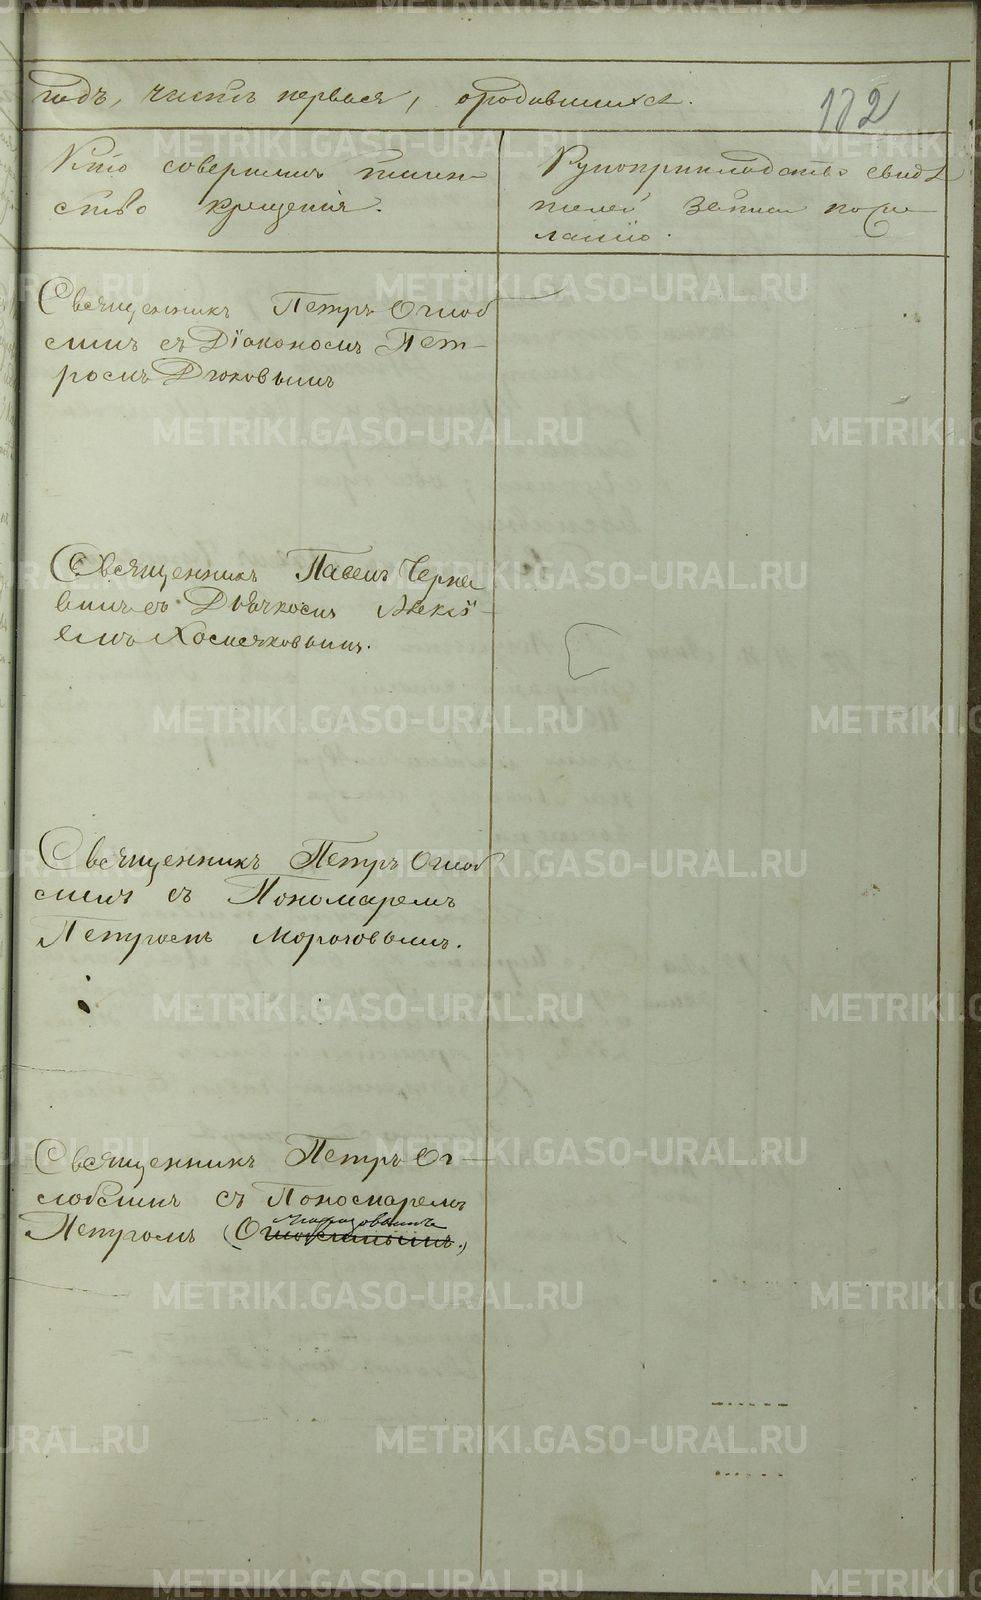 годъ, часть первая, о родившихся.
182
Кто совершилъ таин-
ство крещенія.
Рукоприкладство свидѣ
телей записи по же
ланію.
Священникъ Петръ Оглоб
линъ съ Діакономъ Пет-
ромъ Дюковымъ
Священникъ Павелъ Черня
винъ съ Дьячкомъ Алексѣ-
емъ Хомяковымъ.
Священникъ Петръ Оглоб
линъ съ Пономаремъ
Петромъ Морозовымъ.
Священникъ Петръ Ог-
лоблинъ съ Пономаремъ
Морозовымъ
Петромъ
METRIKI.GASO-URAL.RU